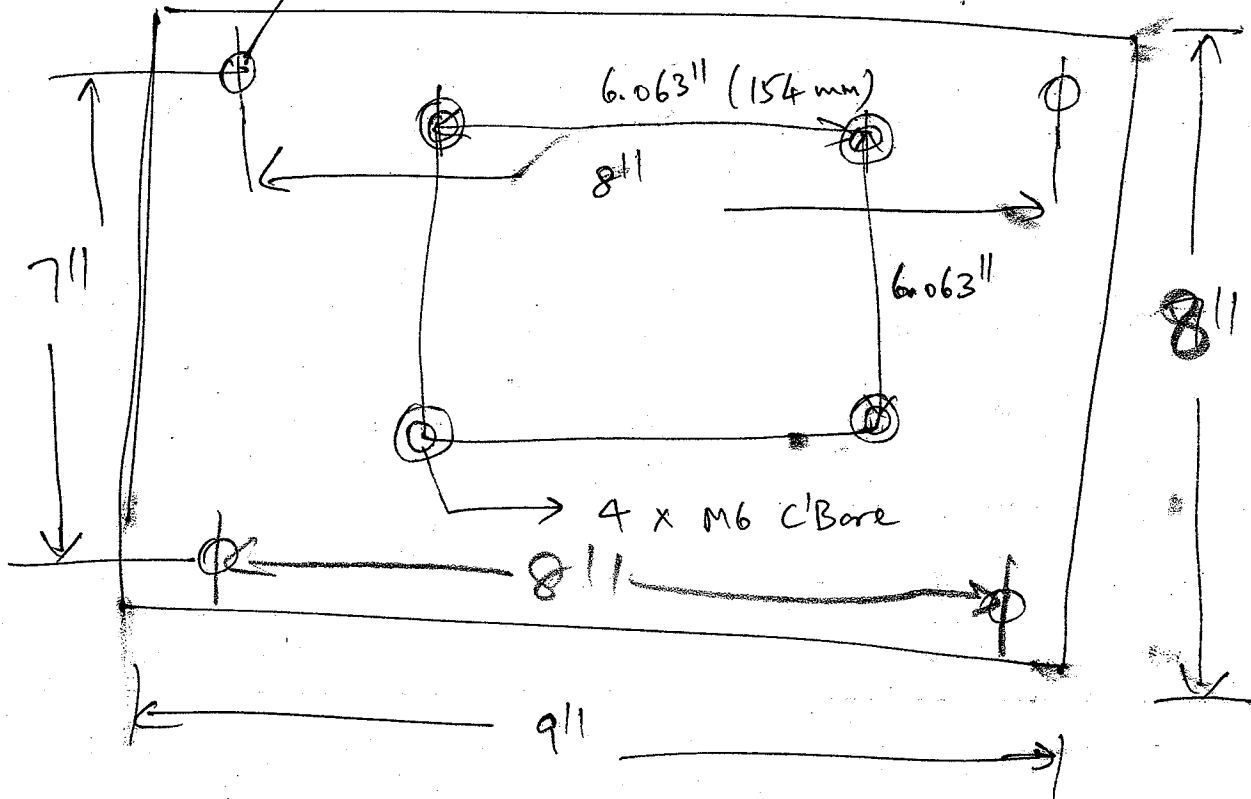 6.063" (154 mm)
8"
7"
6.063"
8"
4 x M6 C'Bore
8"
9"